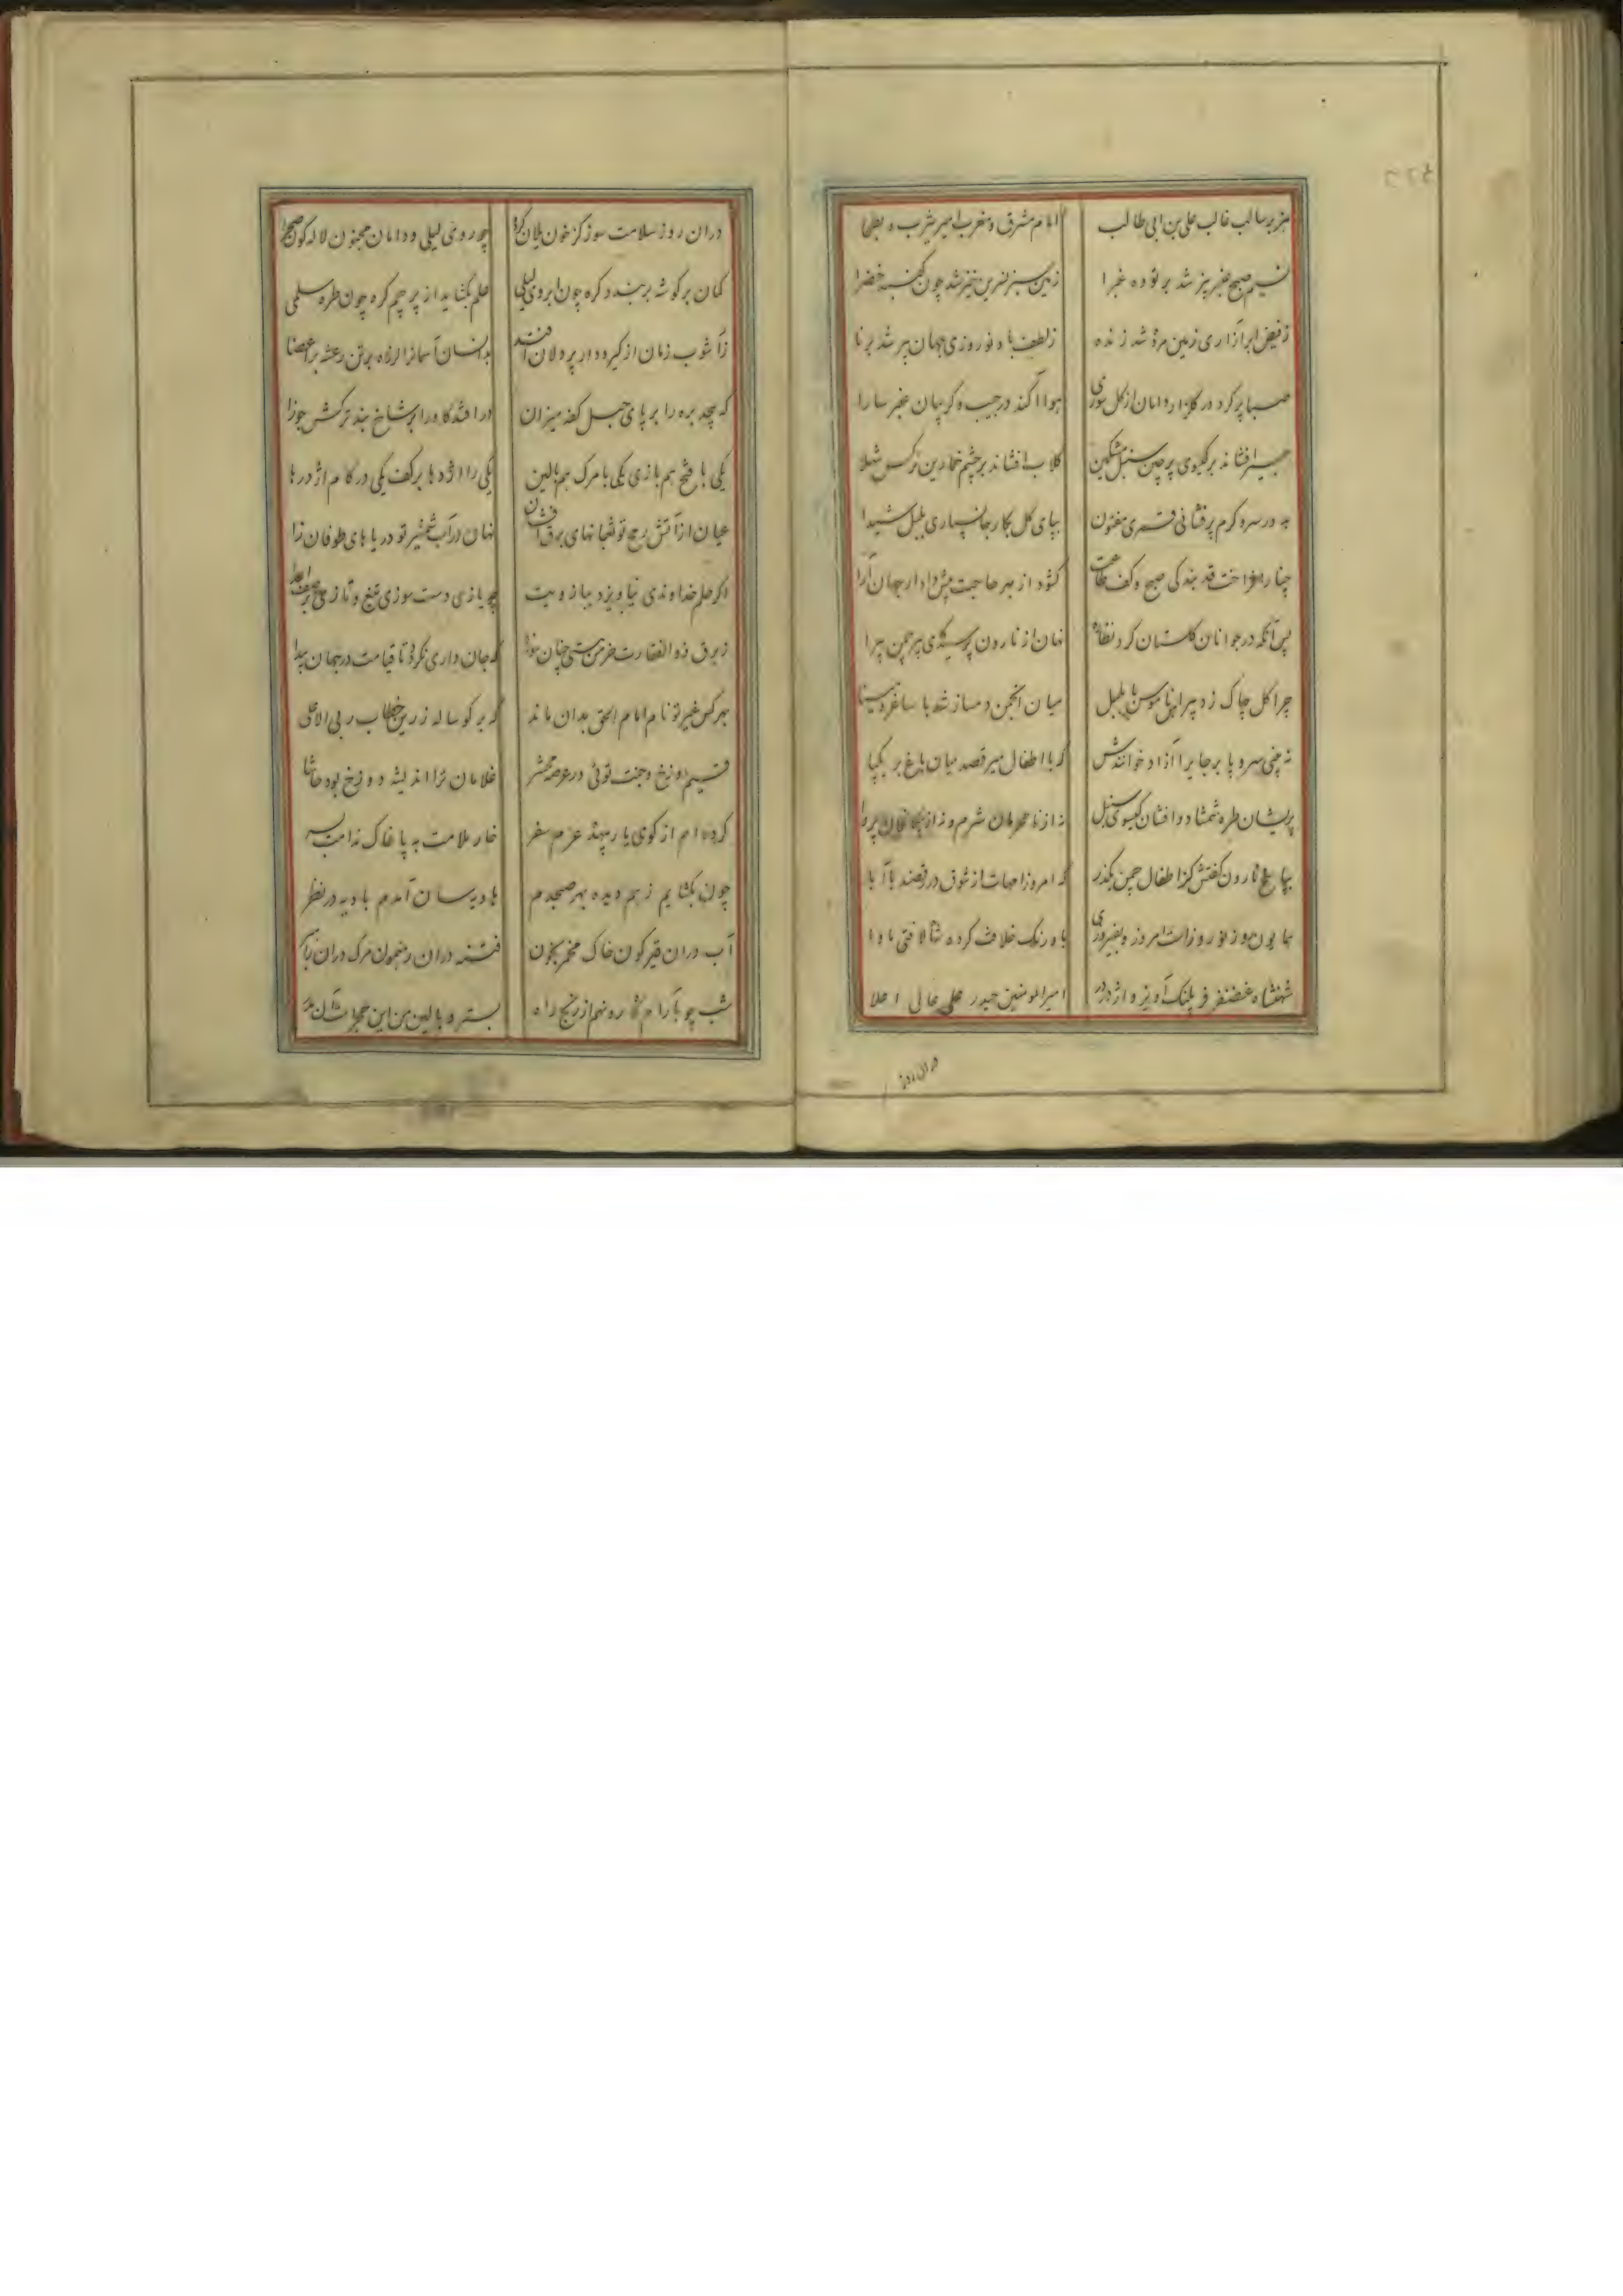 هزبر سالب غالب علی بن ابی طالب امام مشرق و مغرب امیر یثرب و بطحا
نسیم صبح عنبر بیز شد بر توده غبرا زمین سبز نسرین خیز شد چون گنبد خضرا
ز فیض ابر آزاری زمین مرده شد زنده ز لطف باد نوروزی جهان پیر شد برنا
صبا پر کرد در گلزار دامان از گل سوری هوا آکند در جیب و کریبان عنبر سارا
عبیر افشاند بر کیسوی پرچین سنبل مشکین کلاب افشاند بر چشم خمارین نرکس شهلا
به در سرو کرم پرفشانی قمری مفتون بپای کل بکار جانسپاری بلبل شیدا
چنار افراخت قد بندکی صبح و کف طاعت کشود از بهر حاجت پیش دادار جهان آرا
پس آنکه در جوانان کلستان کرد نظاره نهان از نارون پرسید کای پیر چمن پیرا
چرا کل چاک زد پیراهن ناموس با بلبل میان انجمن دمساز شد با ساغر و مینا
نه چنی سرو پا بر جا برا آزاد خوانندش که با اطفال میرقصد میان باغ بر یکپا
پریشان طره شمشاد و افشان کیسوی سنبل نه از نامحرمان شرم و نه از بیکانکان پروا
بپاسخ نارون کفتش کز اطفال چمن بکذر که امروز امهات از شوق در رقصند با آبا
همایون روز نوروزاست امروز و بفیروزی باورنک خلافت کرده شاه لافتی ماوا
شهنشاه غضنفر فر پلنک آویز و اژدر در امیرالمومنین حیدر علی عالی اعلا
دران روز
دران روز سلامت سوز کز خون یلان کردد چو روی لیلی و دامان مجنون لاله کون صحرا
کمان بر کوشه بربندد کره چون ابروی لیلی علم بکشاید از پرچم کره چون طره سلمی
ز آشوب زمان از کیرودار پردلان افتد بدانسان آسمانرا لرزه بر تن رعشه بر اعضا
که پیچد بره را بر پای حبل کفه میزان درافتد کاو را بر شاخ بند ترکش جوزا
یکی با فتح هم بازی یکی با مرک هم بالین یکی را اژدها بر کف یکی در کام اژدرها
عیان از آتش رمح تو ثعبانهای برق افشان نهان در آب شمشیر تو دریاهای طوفان زا
اکر حلم خداوندی نیاویزد ببازویت چو یازی دست سوزی تیغ و تازی
ز برق ذوالفقارت خرمن هستی چنان سوزد که جان داری نکردد تا قیامت در جهان پیدا
بهر کس غیر تو نام امام الحق بدان ماند که بر کوساله زرین خطاب ربی الاعلی
قسیم دوزخ و جنت توئی در عرصه محشر غلامان ترا اندیشه دوزخ بود حاشا
کرده ام از کوی یار بیهده عزم سفر خار ملامت به پا خاک ندامت بسر
چون بکشایم ز هم دیده بهر صبحدم هاویه سان آیدم بادیه در نظر
آب دران قیرکون خاک مخمر بخون فتنه دران رهنمون مرک دران
شب چو بآرام کاه رو نهم از رنج راه بستر و بالین من این